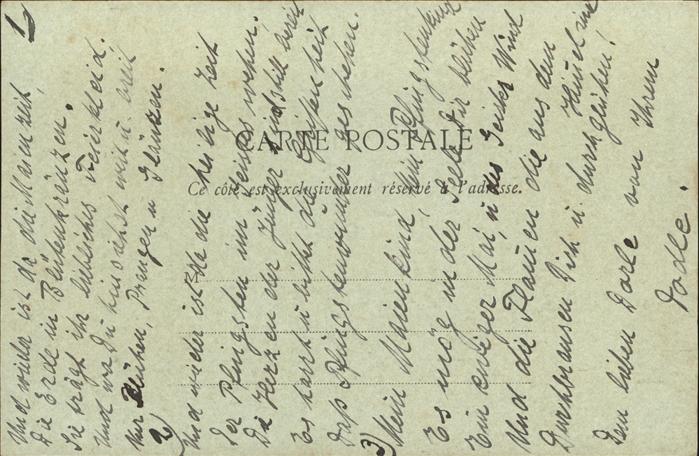 CARTE POSTALE
Ce côté est exclusivement réservé à l'adresse.
1)
Und wieder ist da die Maienzeit,
Die Erde in Blütenkränzen.
Sie trägt ihr liebliches Feierkleid.
Und wo Du hinsiehst weit u. breit
Nur Blühen, Prangen u. Glänzen.
2)
Und wieder ist sie die heilige Zeit
Der Pfingsten im Geistes wehen.
Die Herzen der Jünger sind still bereit
Es harrt u. lischt die
Daß Pfingstenwunder geschehen.
3)
Mein Maienkind, mein Pfingstenkind
Es mög in der Seele Dir blühen
Ein ewiger Mai, u. des Geistes Wind
Und die Flammen die aus dem Himmel sind
Durchbrausen Dich u. durchglühen!
Dem lieben Dorle von Ihrem
Dodle.